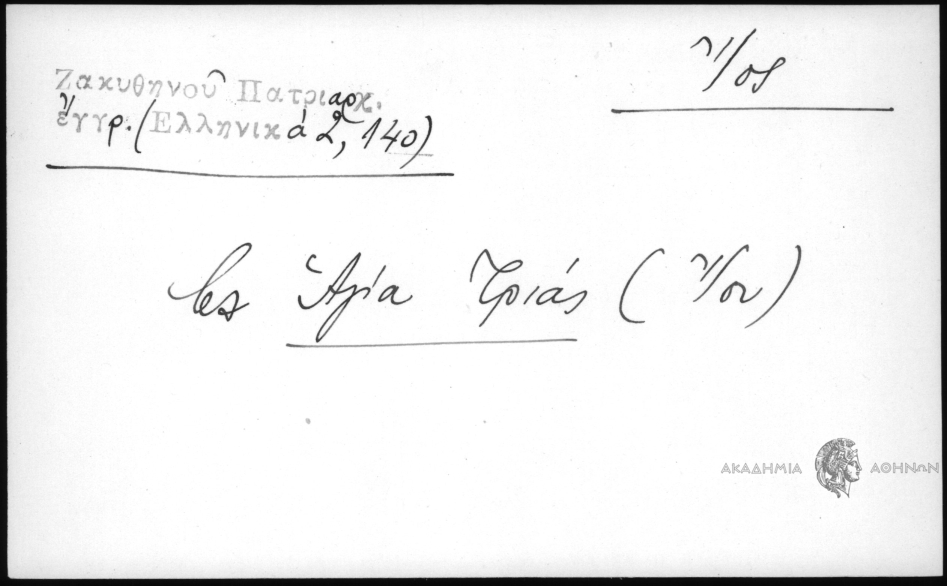 Ζακυθηνοῦ Πατριαρχ.
ἔγγρ. (Ἑλληνικά 2, 140)
Ἴος
Ἁγία Τριάς (Ἴου)
ΑΚΑΔΗΜΙΑ ΑΘΗΝΩΝ